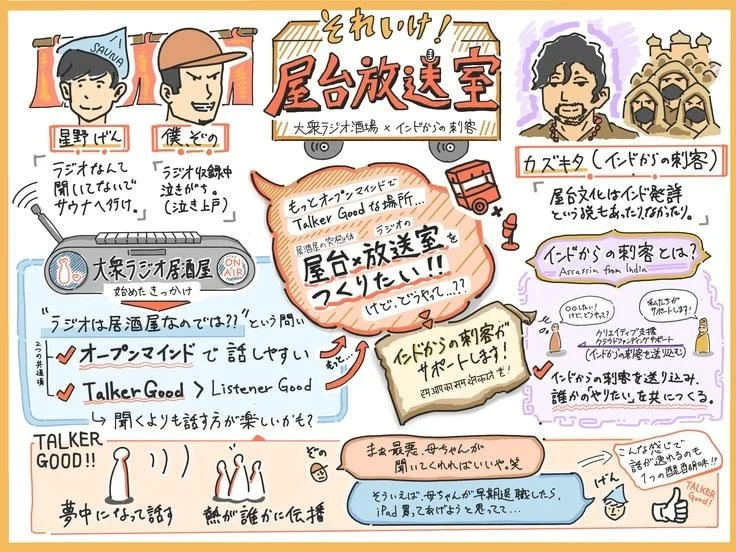 それいけ!
屋台放送室
大衆ラジオ酒場×インドからの刺客
SAUNA
星野げん
僕、ぞの
「ラジオなんて
聞いてないで
サウナへ行け。」
「ラジオ収録中
泣きがち。
(泣き上戸)」
カズキタ(インドからの刺客)
「屋台文化はインド発祥
という説もあったりなかったり。」
大衆ラジオ居酒屋
ON AIR
始めたきっかけ
"ラジオは居酒屋なのでは??"という問い
2つの共通項
オープンマインドで話しやすい
Talker Good > Listener Good
聞くよりも話す方が楽しいかも?
もっと…
もっとオープンマインドで
Talker Goodな場所…
居酒屋の究極体
ラジオの
屋台×放送室を
つくりたい!!
けど、どうやって…??
インドからの刺客が
サポートします!
インドからの刺客とは?
Assassin from India
〇〇したい!
けど、どうやって?
私たちが
サポートします!
クリエイティブ支援
クラウドファンディングサポート
(インドからの刺客を送り込む)
インドからの刺客を送り込み、
誰かの「やりたい」を共につくる。
TALKER
GOOD!!
夢中になって話す
熱が誰かに伝播
ぞの
まぁ最悪、母ちゃんが
聞いてくれればいいや。笑
そういえば、母ちゃんが早期退職したら、
iPad買ってあげようと思ってて…
げん
こんな感じで
話が逸れるのも
1つの醍醐味!?
TALKER
Good!